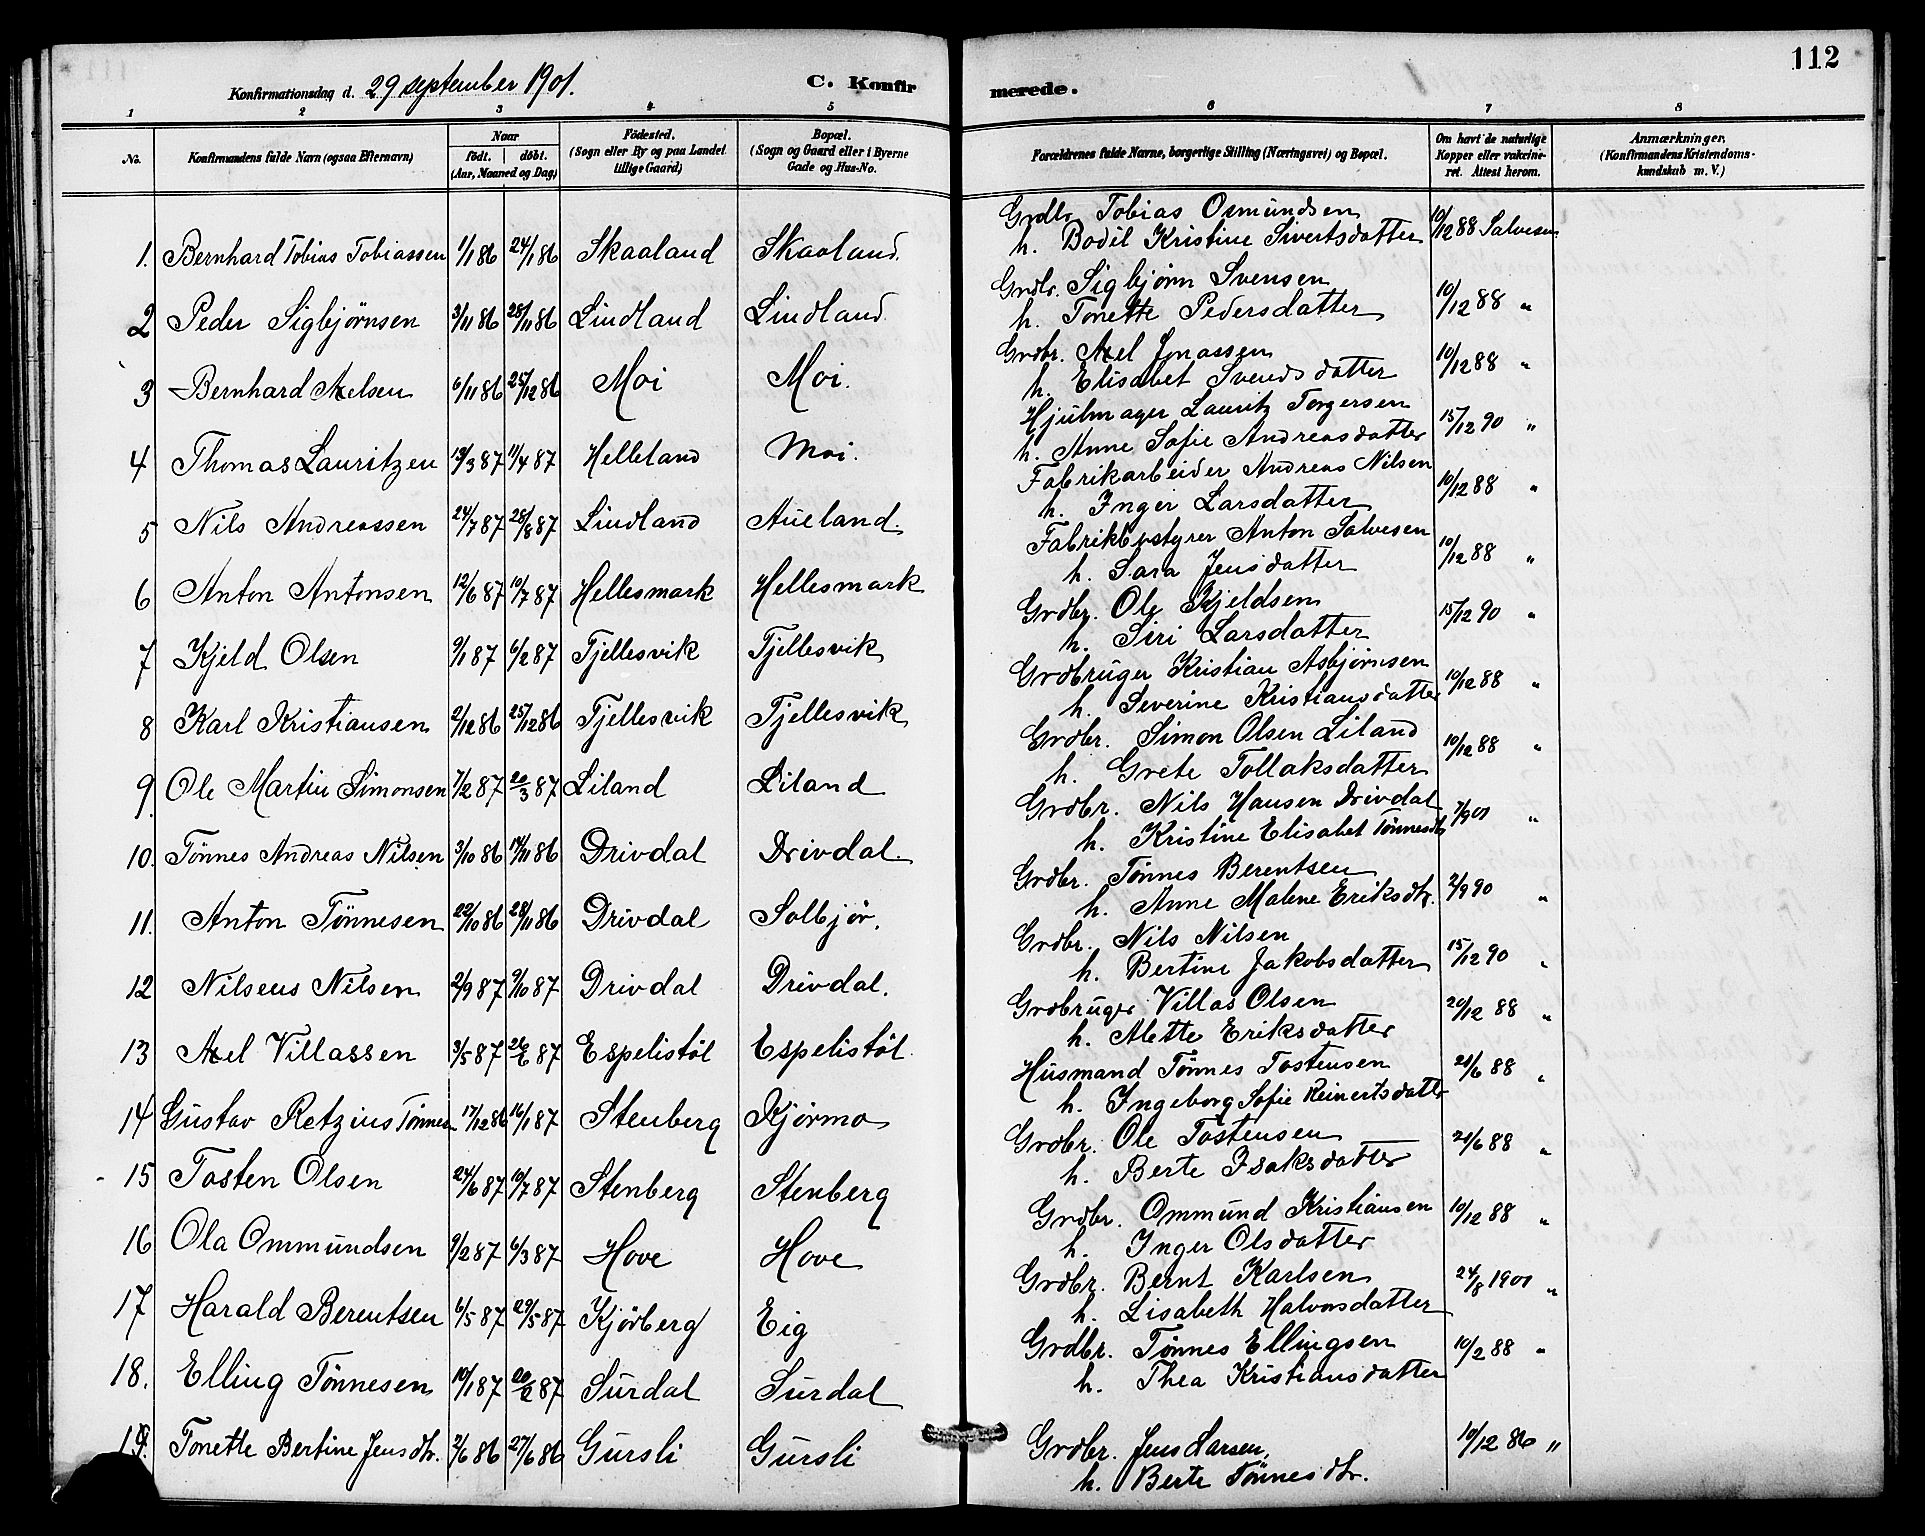 112
Konfirmationsdag d. 29 september 1901.
C. Konfirmerede.
1 2 3 4 5 6 7 8
No.
Konfirmandens fulde Navn (ogsaa Efternavn)
Naar
födt. döbt.
(Aar, Maaned og Dag)
Födested.
(Sogn eller By og paa Landet
tillige Gaard)
Bopæl.
(Sogn og Gaard eller i Byerne
Gade og Hus-No.
Forældrenes fulde Navne, borgerlige Stilling (Næringsvei) og Bopæl.
Om havt de naturlige
Kopper eller vakcine-
ret. Attest herom.
Anmærkninger.
(Konfirmandens Kristendoms-
kundskab m. V.)
1. Bernhard Tobias Tobiassen 1/1 86 24/1 86 Skaaland Skaaland. Grdbr. Tobias Osmundsen 10/12 88 Salvesen
h. Bodil Kristine Sivertsdatter
2 Peder Sigbjørnsen 3/11 86 28/11 86 Lindland Lindland Grdbr. Sigbjørn Svensen 10/12 88 "
h. Tonette Pedersdatter
3 Bernhard Axelsen 6/11 86 25/12 86 Moi Moi. Grdbr. Axel Jonassen 10/12 88 "
h. Elisabet Svendsdatter
4 Thomas Lauritzen 13/3 87 11/4 87 Helleland Moi. Hjulmager Lauritz Torgersen 15/12 90 "
h. Anne Sofie Andreasdatter
5 Nils Andreassen 24/7 87 28/8 87 Lindland Aueland. Fabrikarbeider Andreas Nilsen 10/12 88 "
h. Inger Larsdatter
6 Anton Antonsen 12/6 87 10/7 87 Hellesmark Hellesmark Fabrikbestyrer Anton Salvesen 10/12 88 "
h. Sara Jensdatter
7 Kjeld Olsen 9/1 87 6/2 87 Tjellesvik Tjellesvik Grdbr. Ole Kjeldsen 15/12 90 "
h. Siri Larsdatter
8 Karl Kristiansen 2/12 86 25/12 86 Tjellesvik Tjellesvik Grdbruger Kristian Asbjørnsen 10/12 88 "
h. Severine Kristiansdatter
9. Ole Martin Simonsen 7/2 87 20/3 87 Liland Liland Grdbr. Simon Olsen Liland 10/12 88 "
h. Grete Tollaksdatter
10. Tönnes Andreas Nilsen 3/10 86 14/11 86 Drivdal Drivdal. Grdbr. Nils Hansen Drivdal 7/9 01 "
h. Kristine Elisabet Tönnesdtr
11. Anton Tönnesen 22/10 86 28/11 86 Drivdal Solbjør. Grdbr. Tönnes Berentsen 2/9 90 "
h. Anne Malene Eriksdtr.
12 Nilseus Nilsen 2/9 87 9/10 87 Drivdal Drivdal. Grdbr. Nils Nilsen 15/12 90 "
h. Bertine Jakobsdatter
13 Axel Villassen 3/5 87 26/6 87 Espelistöl Espelistöl. Grdbruger Villas Olsen 20/12 88 "
h. Mette Eriksdatter
14 Gustav Retzius Tönnes. 17/12 86 16/1 87 Stenberg Kjörmo Husmand Tönnes Tostensen 21/6 88 "
h. Ingeborg Sofie Reinertsdatter
15 Tosten Olsen 24/6 87 10/7 87 Stenberg Stenberg Grdbr. Ole Tostensen 21/6 88 "
h. Berte Isaksdatter
16 Ola Ommundsen 9/2 87 6/3 87 Hove Hove Grdbr. Ommund Kristiansen 10/12 88 "
h. Inger Olsdatter
17 Harald Berentsen 6/5 87 29/5 87 Kjörberg Eig Grdbr. Bernt Karlsen 24/8 1901 "
h. Lisabeth Halvorsdatter
18. Elling Tönnesen 10/1 87 20/2 87 Surdal Surdal Grdbr. Tönnes Ellingsen 10/2 88 "
h. Thea Kristiansdatter
19. Tonette Bertine Jensdtr. 2/6 86 27/6 86 Gursli Gursli Grdbr. Jens Larsen, 10/12 86 "
h. Berte Tönnesdtr.